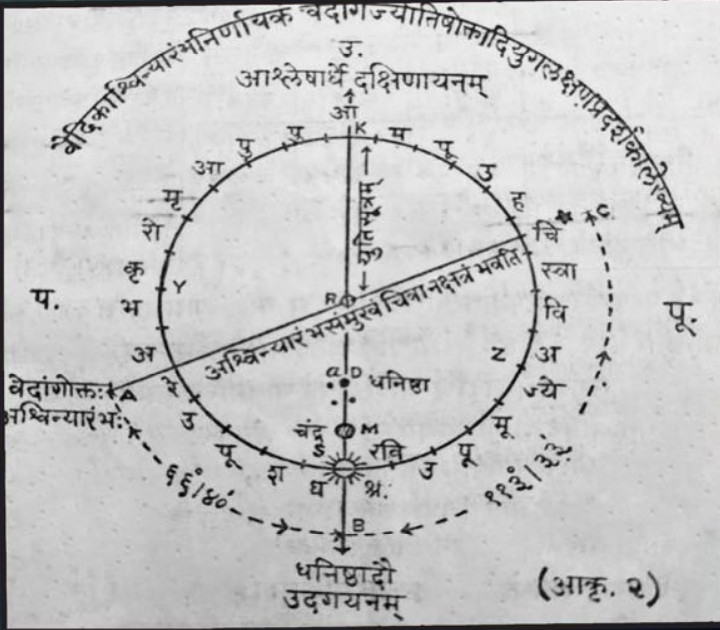 वेदिकाश्विन्यारंभनिर्णायक वेदांगज्योतिषोक्तादियुगलक्षणप्रदर्शकालेख्यम्
उ.
आश्लेषार्धे दक्षिणायनम्
आ
K
पु
पु
आ
मृ
रो
कृ
भ
अ
म
पू
उ
ह
चि
C
स्वा
वि
अ
ज्ये
मू
पू
उ
श्र.
ध
श
पू
उ
रे
Y
Z
प.
पू.
R
अश्विन्यारंभसंमुखं चित्रा नक्षत्रं भवति
वेदांगोक्तः
A
अश्विन्यारंभः
G D धनिष्ठा
चंद्र M
S रवि
६६°।४०'
११३°।३३'
B
धनिष्ठादौ
उदगयनम्
(आकृ. २)